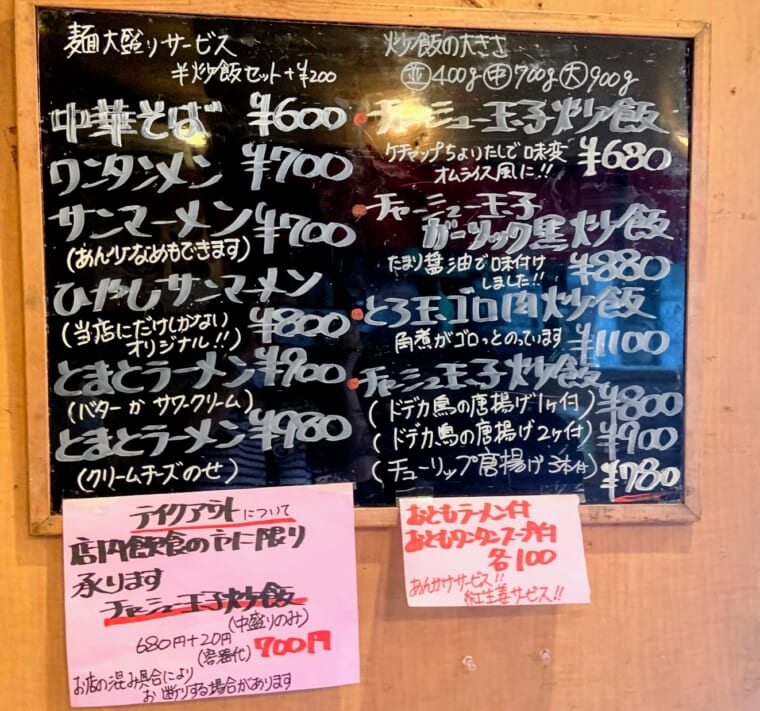 麺大盛りサービス
半炒飯セット+¥200
中華そば ¥600
ワンタンメン ¥700
サンマーメン ¥700
(あんかなめもできます)
ひやしサンマーメン
(当店にだけしかない
オリジナル!!) ¥800
とまとラーメン ¥900
(バターかサワークリーム)
とまとラーメン ¥980
(クリームチーズのせ)
炒飯の大きさ
並400g 中700g 大900g
チャーシュー玉子炒飯
ケチャップちょいたしで味変 ¥680
オムライス風に!!
チャーシュー玉子
ガーリック黒炒飯
たまり醤油で味付け ¥880
しました!!
とろ玉ゴロ肉炒飯
角煮がゴロっとのっています ¥1100
チャーシュー玉子炒飯
(ドデカ鳥の唐揚げ1ヶ付) ¥800
(ドデカ鳥の唐揚げ2ヶ付) ¥900
(チューリップ唐揚げ3本付) ¥780
テイクアウトについて
店内飲食の方に限り
承ります
チャーシュー玉子炒飯
(中盛りのみ)
680円+20円 700円
(容器代)
お店の混み具合により
お断りする場合があります
おともラーメン付
おともワンタンスープ付
各100
あんかけサービス!!
紅生姜サービス!!